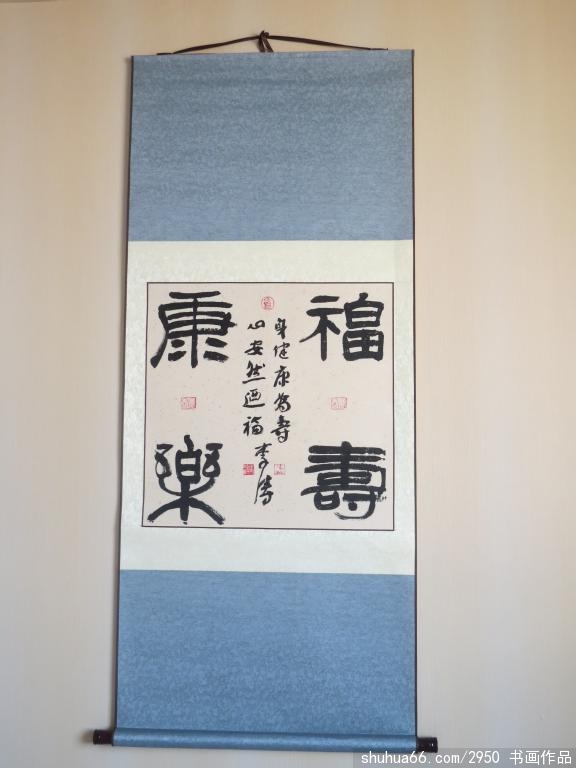 福壽
康樂
身健康為壽
心安然迺福
李濤
shuhua66.com/2950 书画作品